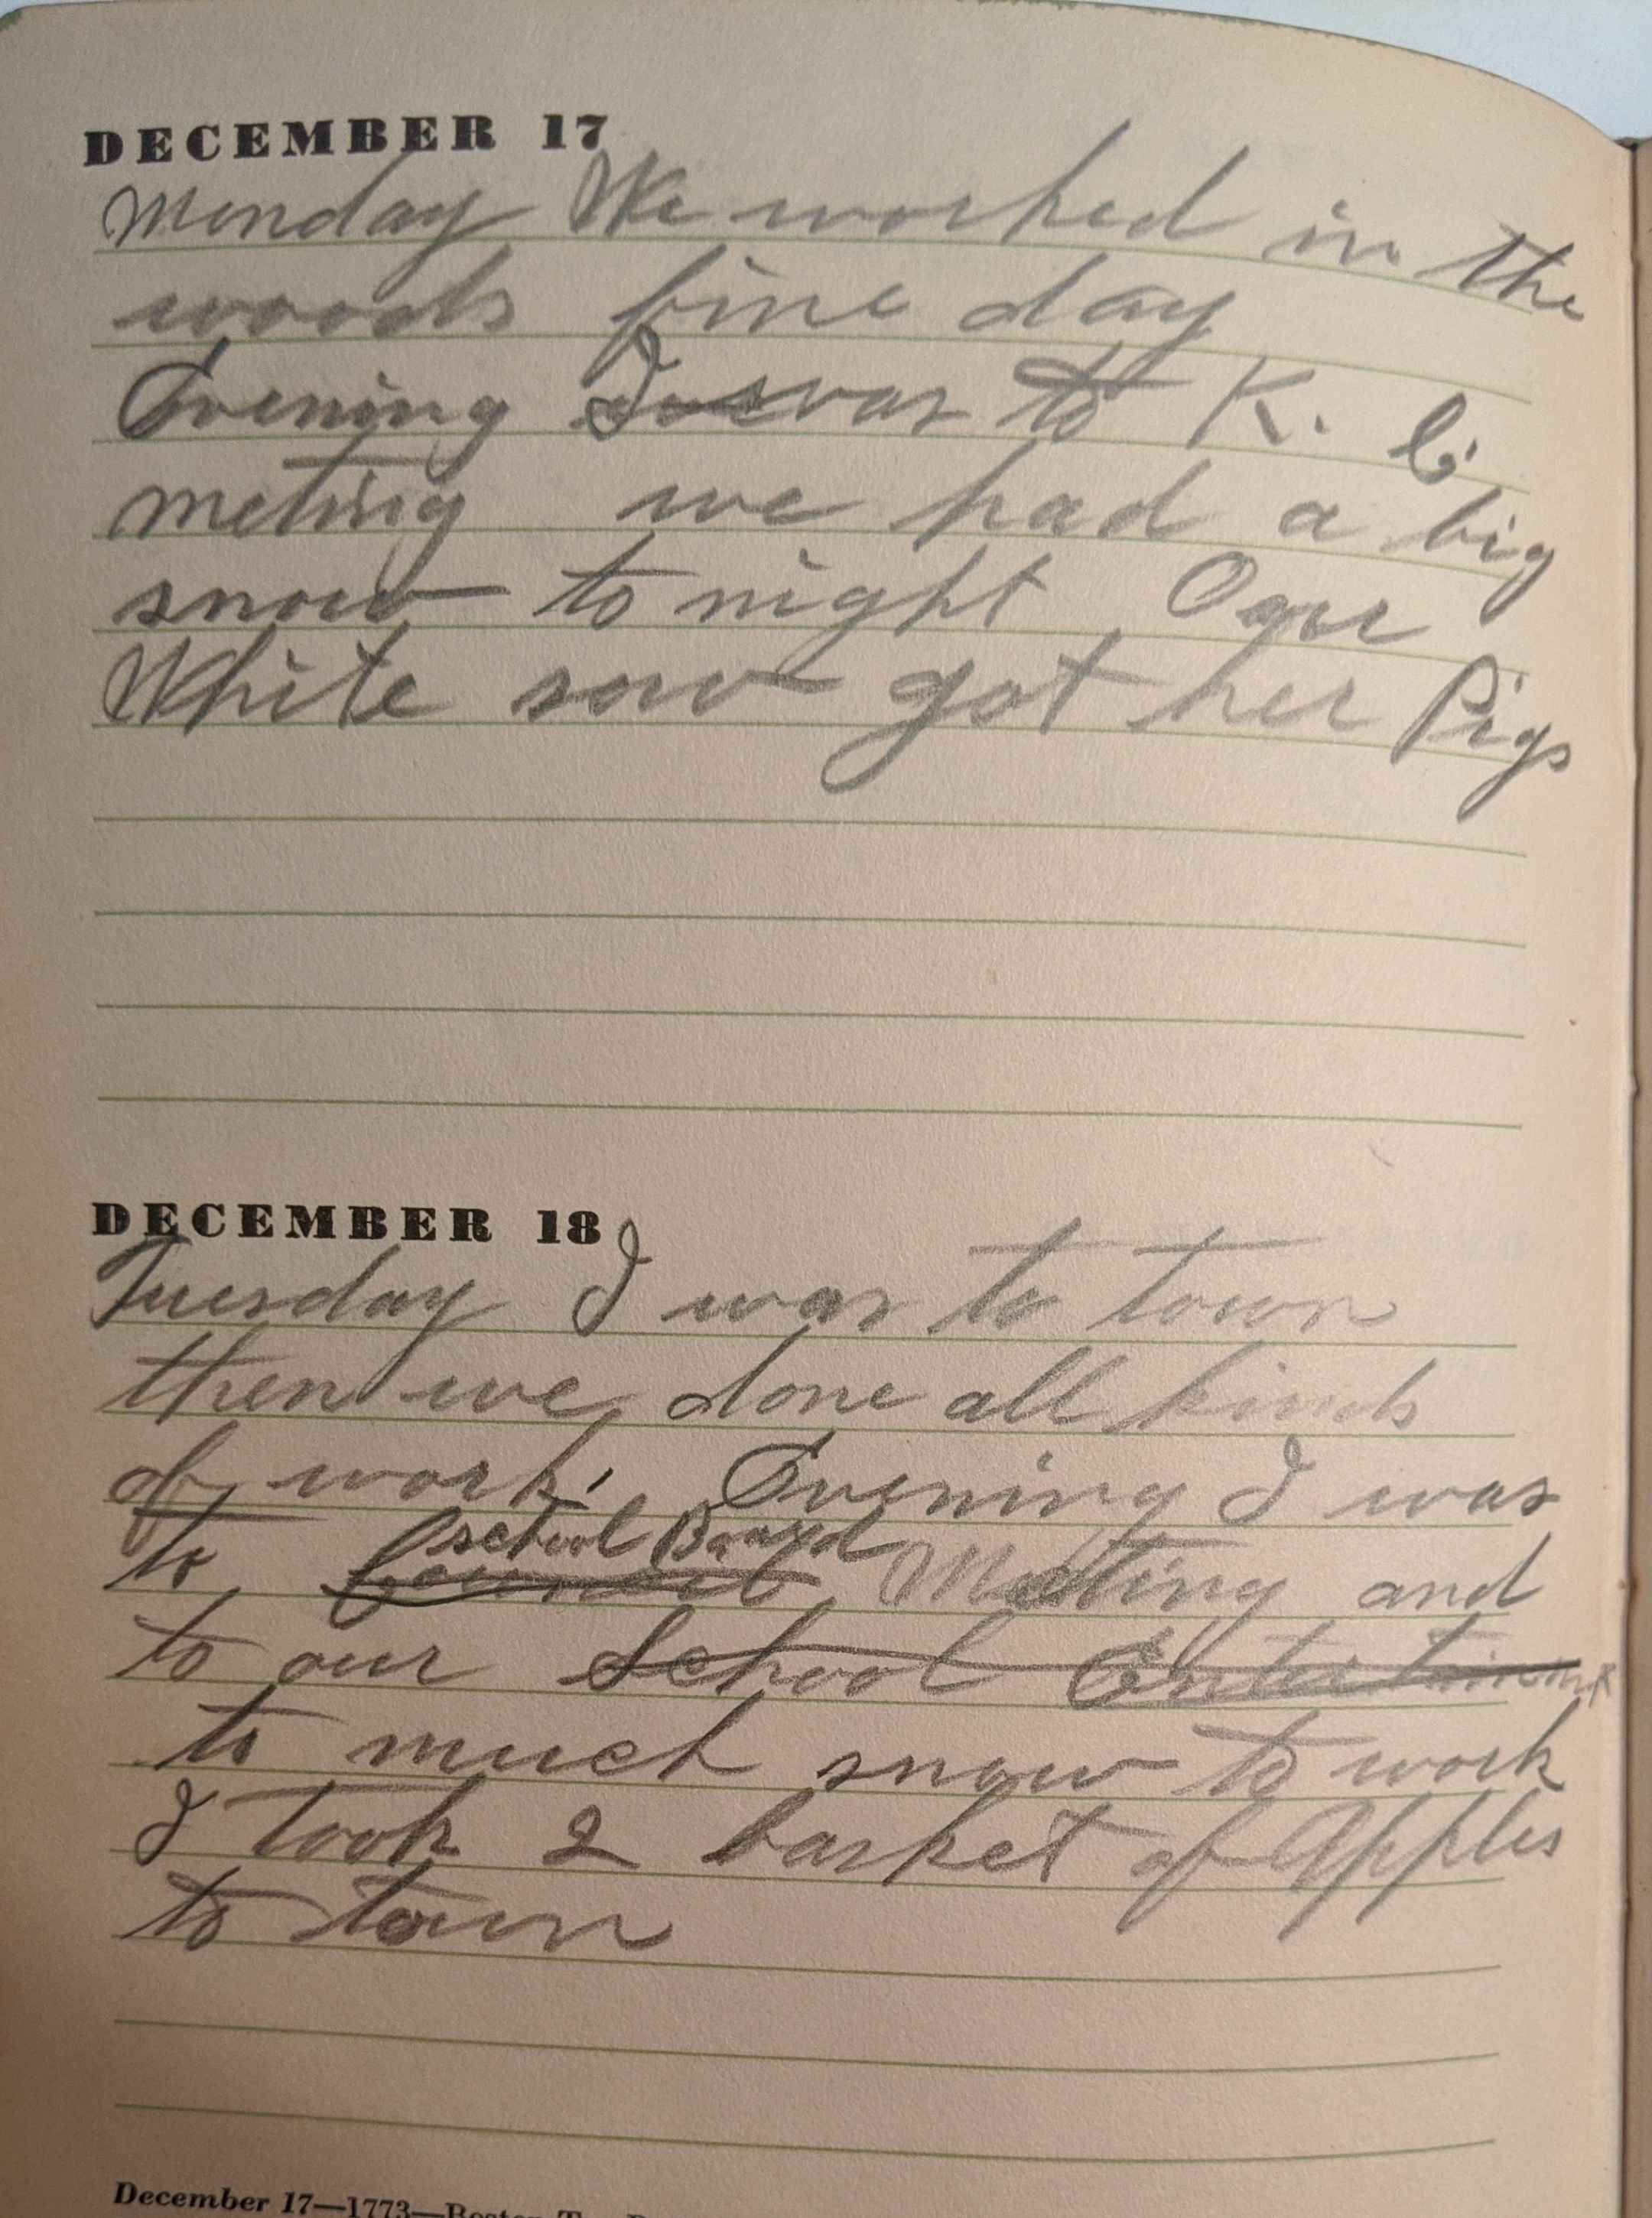 DECEMBER 17
Monday We worked in the
woods fine day
Evening I was to K. C.
meting we had a big
snow to night Our
White sow got her Pigs
DECEMBER 18
Tuesday I was to town
then we done all kinds
of work. Evening I was
school Board
to Council Meeting and
to our School Entertainment
to much snow to work
I took 2 basket of Apples
to town
December 17—1773—Boston Tea